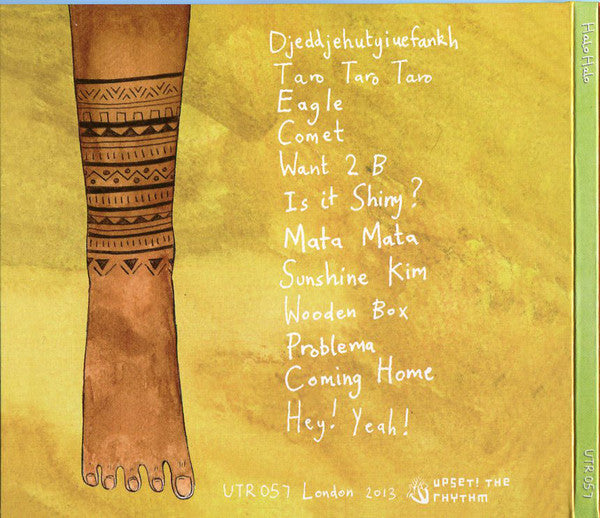 Djeddjehutyiuefankh
Taro Taro Taro
Eagle
Comet
Want 2 B
Is it Shiny?
Mata Mata
Sunshine Kim
Wooden Box
Problema
Coming Home
Hey! Yeah!
UTR 057 London 2013
UPSET! THE
RHYTHM
Halo Halo
UTR 057